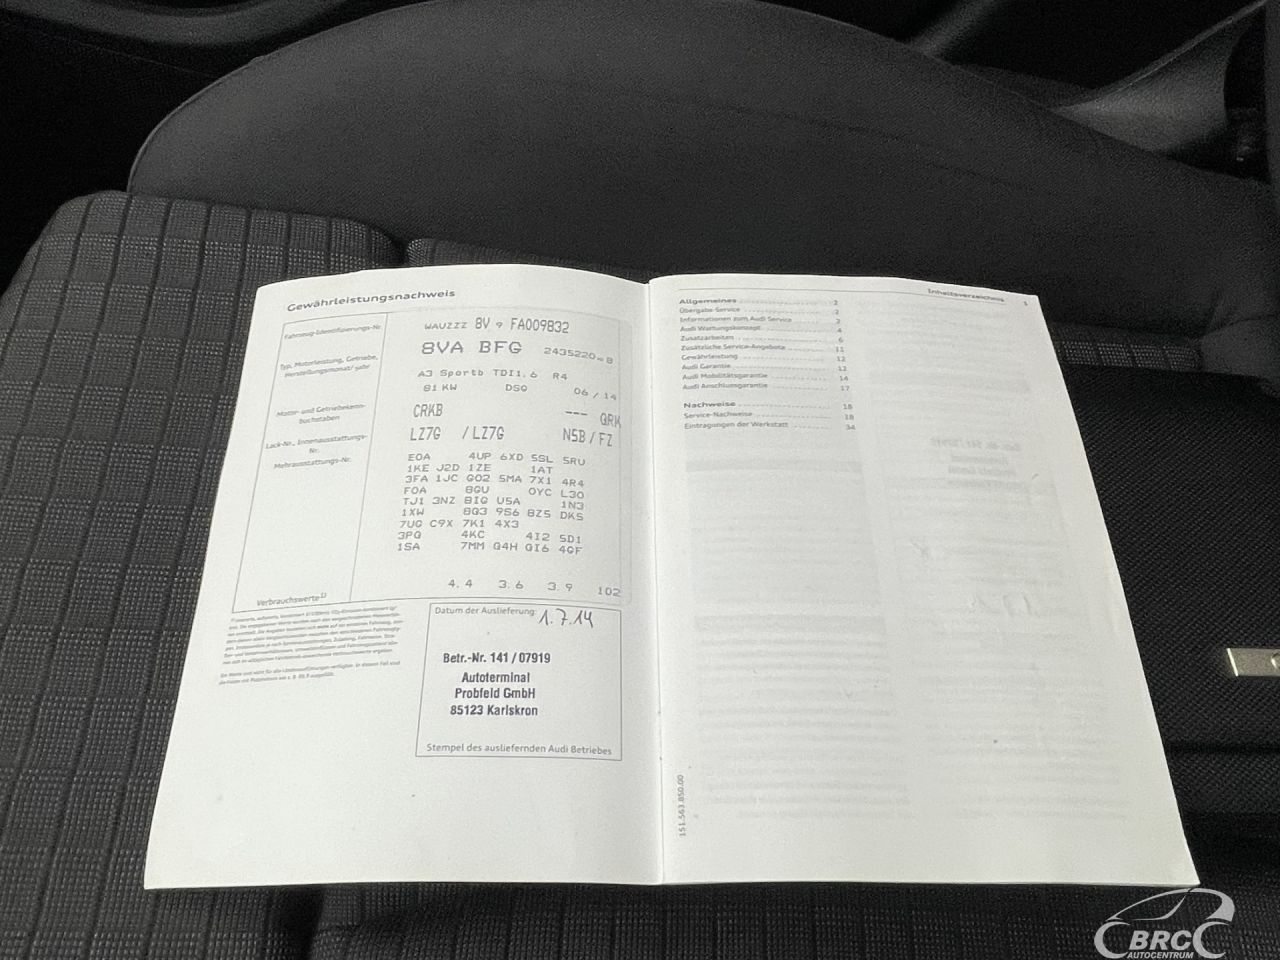 Gewährleistungsnachweis
Fahrzeug-Identifizierungs-Nr.
WAUZZZ 8V 9 FA009832
8VA BFG 2435220-8
Typ, Motorleistung, Getriebe,
Herstellungsmonat/-jahr
A3 Sportb TDI1.6 R4
81 KW DSG 06 / 14
Motor- und Getriebekenn-
buchstaben
CRKB --- QRK
Lack-Nr., Innenausstattungs-
Nr.
LZ7G / LZ7G N5B / FZ
Mehrausstattungs-Nr.
E0A 4UP 6XD 5SL 5RU
1KE J2D 1ZE 1AT
3FA 1JC G02 5MA 7X1 4R4
F0A 8GU 0YC L30
TJ1 3NZ 8IG U5A 1N3
1XW 8Q3 9S6 8Z5 DK5
7UG C9X 7K1 4X3
3PG 4KC 4I2 5D1
1SA 7MM Q4H QI6 4GF
Verbrauchswerte¹⁾
4.4 3.6 3.9 102
Datum der Auslieferung: 1.7.14
Betr.-Nr. 141 / 07919
Autoterminal
Probfeld GmbH
85123 Karlskron
Stempel des ausliefernden Audi Betriebes
Inhaltsverzeichnis 1
Allgemeines 2
Übergabe-Service 2
Informationen zum Audi Service 2
Audi Wartungskonzept 4
Zusatzarbeiten 6
Zusätzliche Service-Angebote 11
Gewährleistung 12
Audi Garantie 12
Audi Mobilitätsgarantie 14
Audi Anschlussgarantie 17
Nachweise 18
Service-Nachweise 18
Eintragungen der Werkstatt 34
151.563.850.00
BRC
AUTOCENTRUM